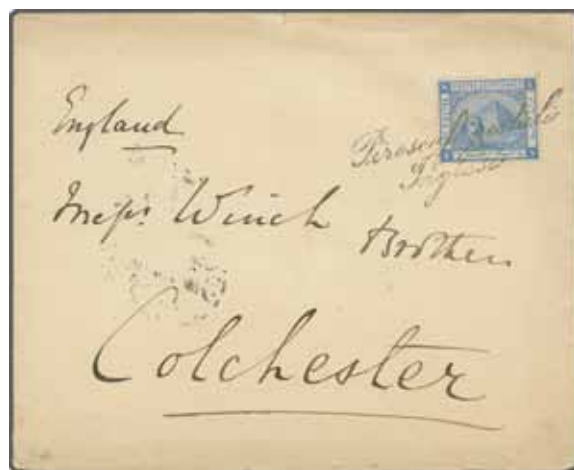 England
Piroscafi Postali
Inglesi
Messrs. Winch
Brothers
Colchester